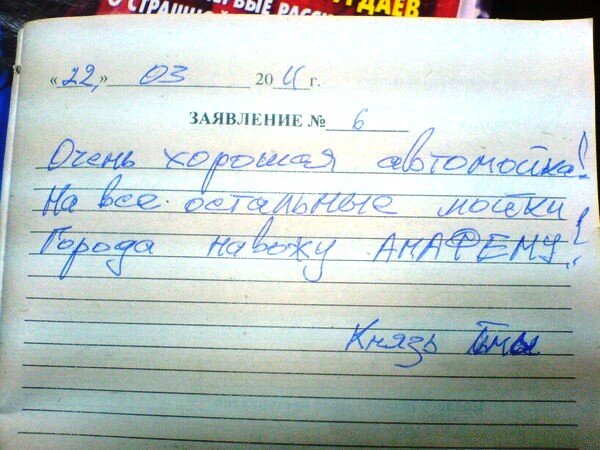 ДАЕВ
ЕРВЫЕ РАСС
О СТРАШНОЙ
«22,» 03 2011 г.
ЗАЯВЛЕНИЕ № 6
Очень хорошая автомойка!
На все остальные мойки
Города навожу АНАФЕМУ!
Князь тьмы